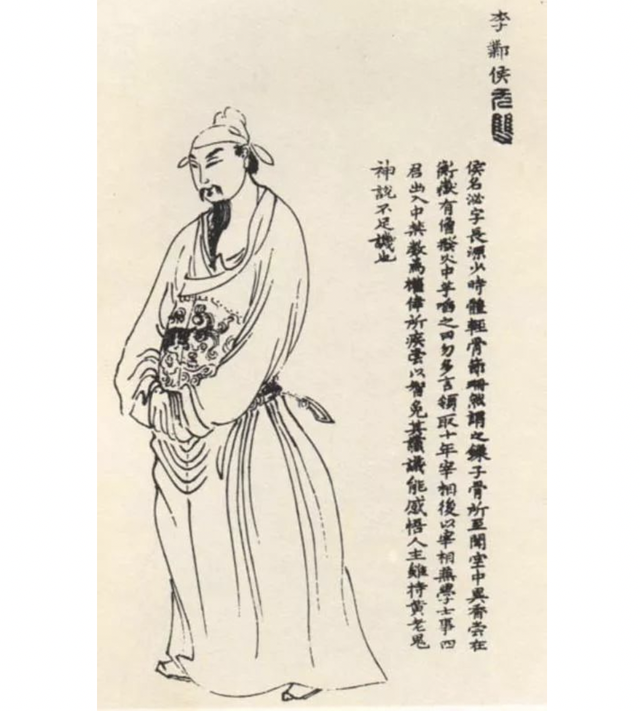 李鄴侯无雙
侯名泌字長源少時體輕骨節珊然謂之鏁子骨所至聞空中異香嘗在
衡嶽有僧撥火中芋啗之曰勿多言領取十年宰相後以宰相兼學士事四
君出入中禁數為權倖所疾嘗以智免其讜議能感悟人主雖持黃老鬼
神說不足譏也